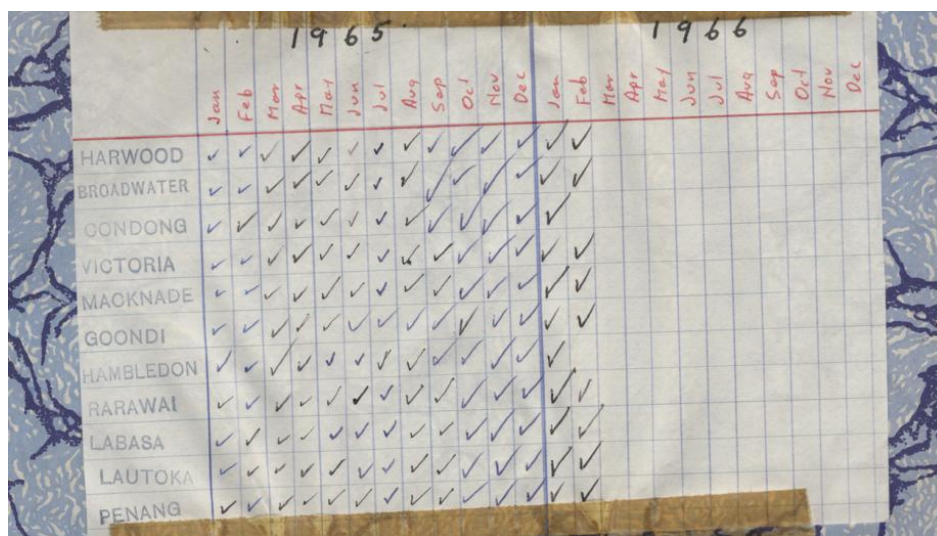 1965 1966
Jan Feb Mar Apr May Jun Jul Aug Sep Oct Nov Dec Jan Feb Mar Apr May Jun Jul Aug Sep Oct Nov Dec
HARWOOD ✓ ✓ ✓ ✓ ✓ ✓ ✓ ✓ ✓ ✓ ✓ ✓ ✓ ✓
BROADWATER ✓ ✓ ✓ ✓ ✓ ✓ ✓ ✓ ✓ ✓ ✓ ✓ ✓ ✓
CONDONG ✓ ✓ ✓ ✓ ✓ ✓ ✓ ✓ ✓ ✓ ✓ ✓ ✓
VICTORIA ✓ ✓ ✓ ✓ ✓ ✓ ✓ ✓ ✓ ✓ ✓ ✓ ✓ ✓
MACKNADE ✓ ✓ ✓ ✓ ✓ ✓ ✓ ✓ ✓ ✓ ✓ ✓ ✓ ✓
GOONDI ✓ ✓ ✓ ✓ ✓ ✓ ✓ ✓ ✓ ✓ ✓ ✓ ✓ ✓
HAMBLEDON ✓ ✓ ✓ ✓ ✓ ✓ ✓ ✓ ✓ ✓ ✓ ✓ ✓
RARAWAI ✓ ✓ ✓ ✓ ✓ ✓ ✓ ✓ ✓ ✓ ✓ ✓ ✓ ✓
LABASA ✓ ✓ ✓ ✓ ✓ ✓ ✓ ✓ ✓ ✓ ✓ ✓ ✓ ✓
LAUTOKA ✓ ✓ ✓ ✓ ✓ ✓ ✓ ✓ ✓ ✓ ✓ ✓ ✓ ✓
PENANG ✓ ✓ ✓ ✓ ✓ ✓ ✓ ✓ ✓ ✓ ✓ ✓ ✓ ✓